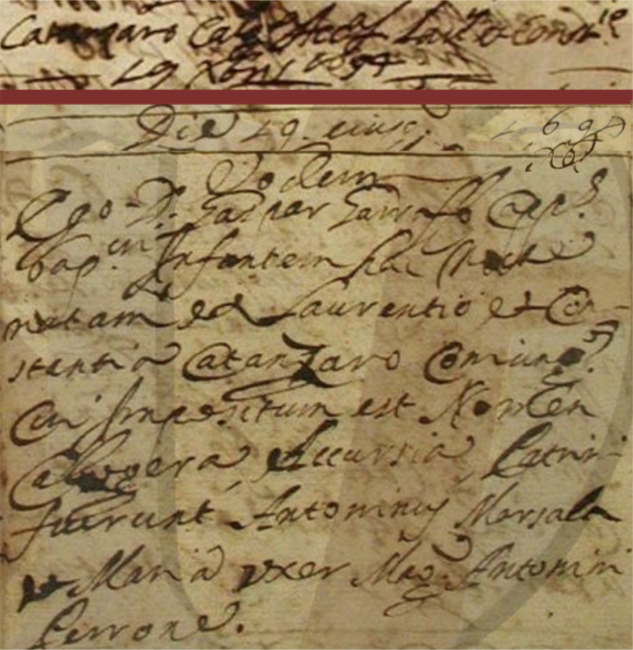 Catanzaro Calog. Accur. Laur. et Const.ie
29 Xbris 1694
Die 29 eiusq. 1694
Eodem
Ego D. Gasper Garraffo Cap.s
bap.  Infantem hac Nocte
natam ex Laurentio et Con-
stantia Catanzaro Coniug.s
Cui Impositum est Nomen
Calogera Accursia Patrini
fuerunt Antoninus Marsala
et Maria uxor Mag. Antonini
Perrone.